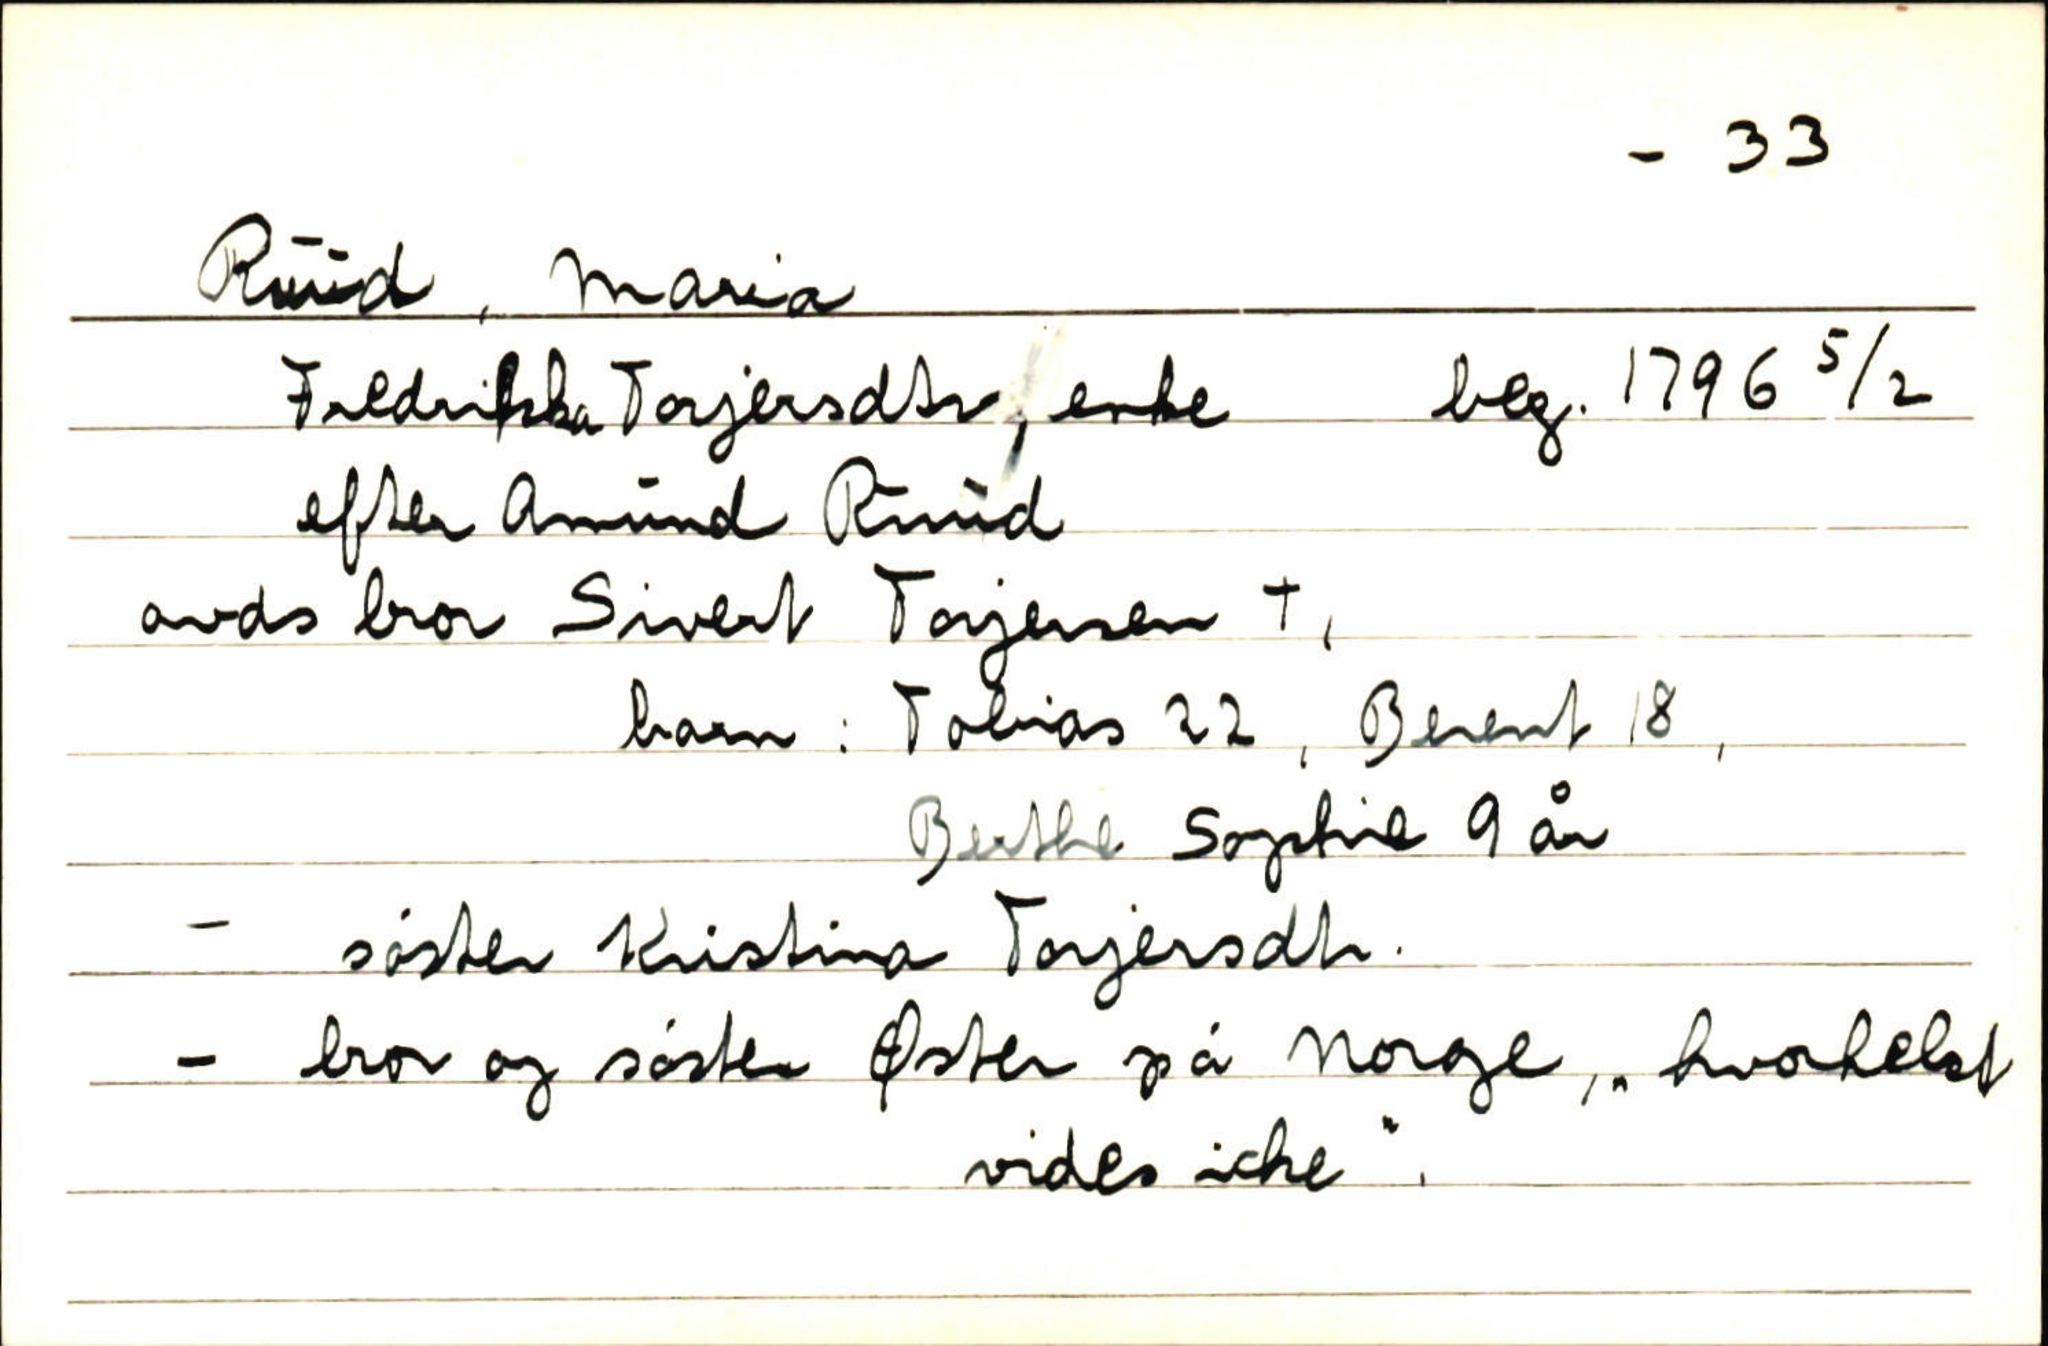 - 33
Ruud, Maria
Fredrikka Torjersdtr, enke beg. 1796 5/2
efter Amund Ruud
avds bror Sivert Torjersen †,
barn: Tobias 22, Berent 18,
Berthe Sophie 9 år
- søster Kristina Torjersdtr.
- bror og søster Øster på Norge, „hvorhelst
vides icke".